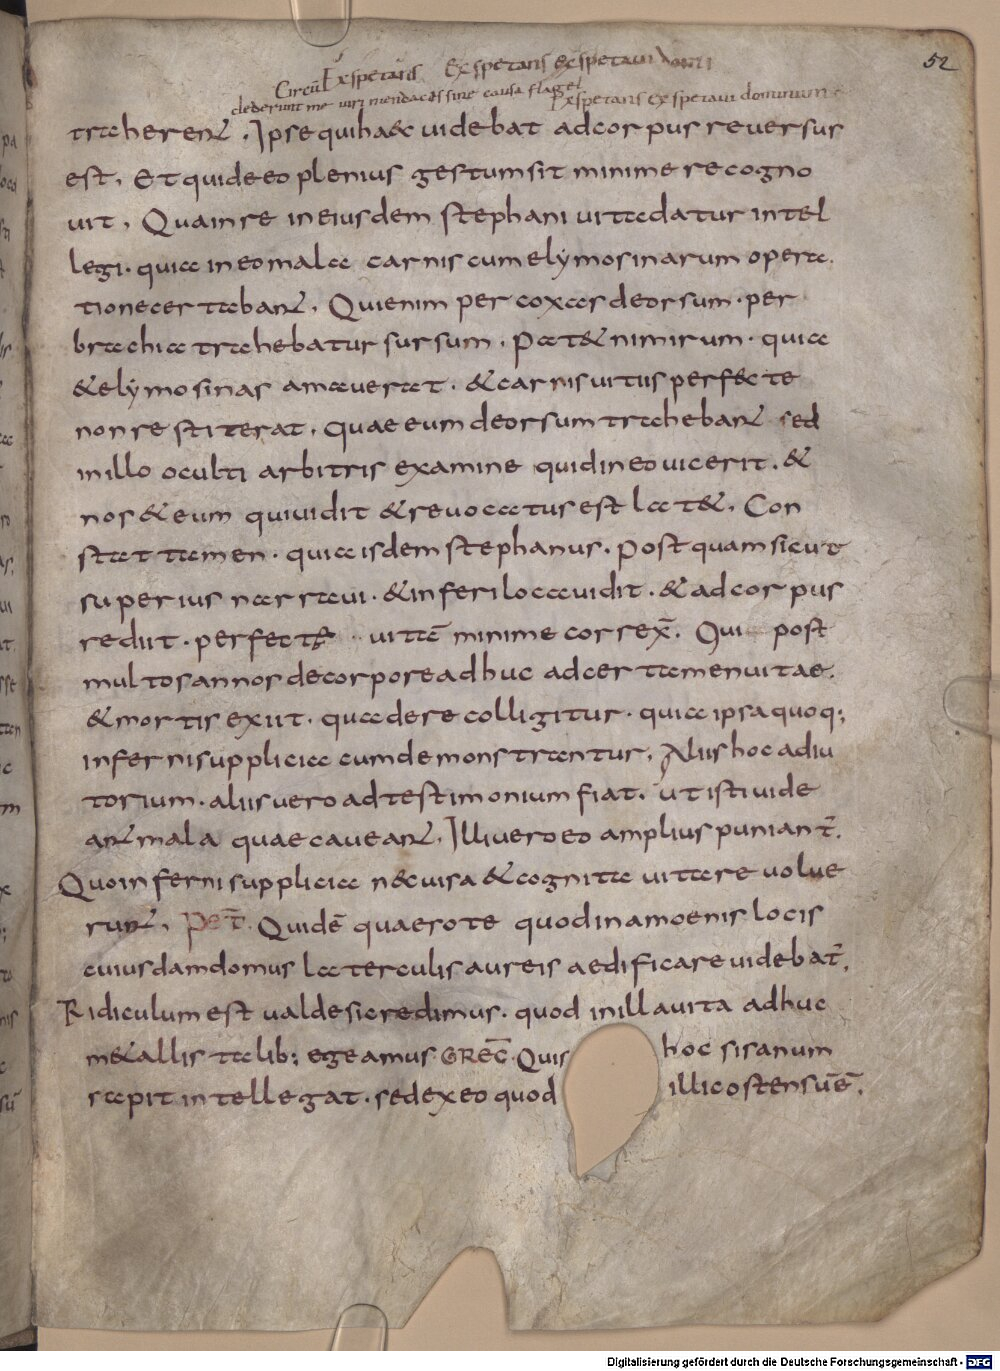 52
Exspetans Exspetans exspetaui domi
Circū
dederunt me uiri mendaces sine causa flagel
Exspetans exspetaui dominum
traherent. Ipse qui haec uidebat ad corpus reuersus
est. Et quid eo plenius gestum sit minime recogno
uit. Qua in re in eiusdem stephani uita datur intel
legi. quia in eo mala carnis cum elymosinarum opera
tione certabant. Qui enim per coxas deorsum. per
brachia trahebatur sursum. Patet nimirum. quia
& elymosinas amauerat. & carnis uitiis perfecte
non restiterat. quae eum deorsum trahebant sed
in illo occulti arbitris examine quid in eo uicerit. &
nos & eum qui uidit & reuocatus est latet. Con
stat tamen. quia isdem stephanus. postquam sicut
superius narraui. & inferi loca uidit. & ad corpus
rediit. perfecte uitā minime correx̄. Qui post
multos annos de corpore adhuc ad certamen uitae.
& mortis exiit. qua de re colligitur. quia ipsa quoq;
inferni supplicia cum demonstrantur. Aliis hoc adiu
torium. aliis uero ad testimonium fiat. ut isti uide
ant mala quae caueant. Illi uero eo amplius puniant̄.
Quo inferni supplicia nec uisa & cognita uitare uolue
runt. Pet̄. Quidē quaero te quod in amoenis locis
cuiusdam domus laterculis aureis aedificare uidebat̄.
Ridiculum est ualde si credimus. quod in illa uita adhuc
metallis talib; egeamus GREḠ. Quis hoc si sanum
sapit intellegat. sed ex eo quod illic ostensū ē.
Digitalisierung gefördert durch die Deutsche Forschungsgemeinschaft - DFG